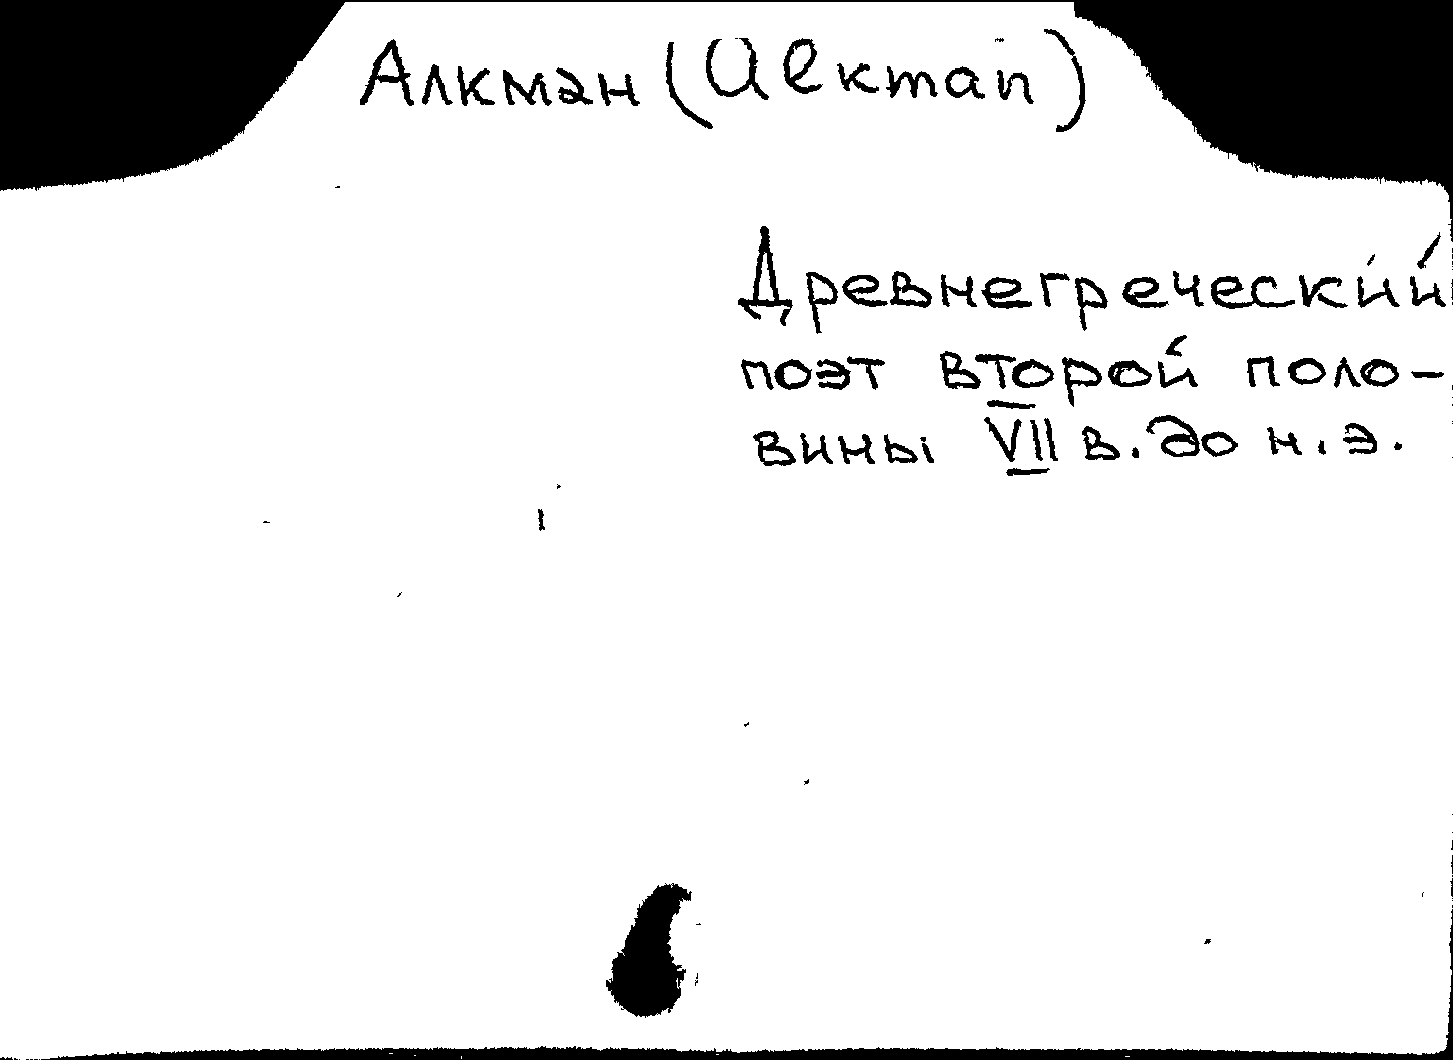 Алкман (Alkman)
Древнегреческий
поэт второй поло-
вины VII в. до н.э.